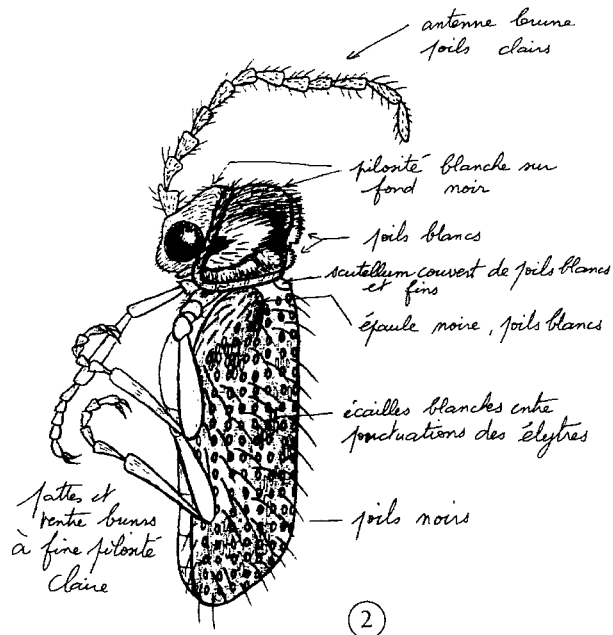 antenne brune
poils clairs
pilosité blanche sur
fond noir
poils blancs
scutellum couvert de poils blancs
et fins
épaule noire, poils blancs
écailles blanches entre
ponctuations des élytres
poils noirs
pattes et
ventre bruns
à fine pilosité
claire
2